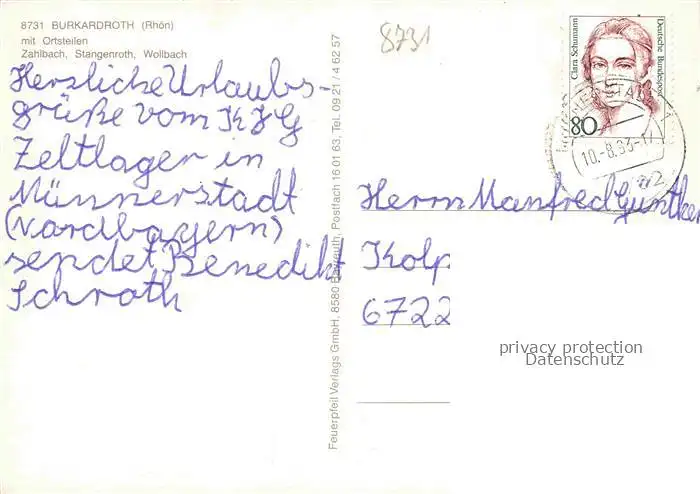 8731 BURKARDROTH (Rhön)
mit Ortsteilen
Zahlbach, Stangenroth, Wollbach
Herzliche Urlaubs-
grüße vom KJG
Zeltlager in
Münnerstadt
(Nordbayern)
sendet Benedikt
Schroth
8731
Feuerpfeil Verlags GmbH, 8580 Bayreuth, Postfach 16 01 63, Tel. 09 21 / 4 62 57
Clara Schumann
Deutsche Bundespost
80
10.-8.93-17
Herrn Manfred Günther
Kolp
6722
privacy protection
Datenschutz